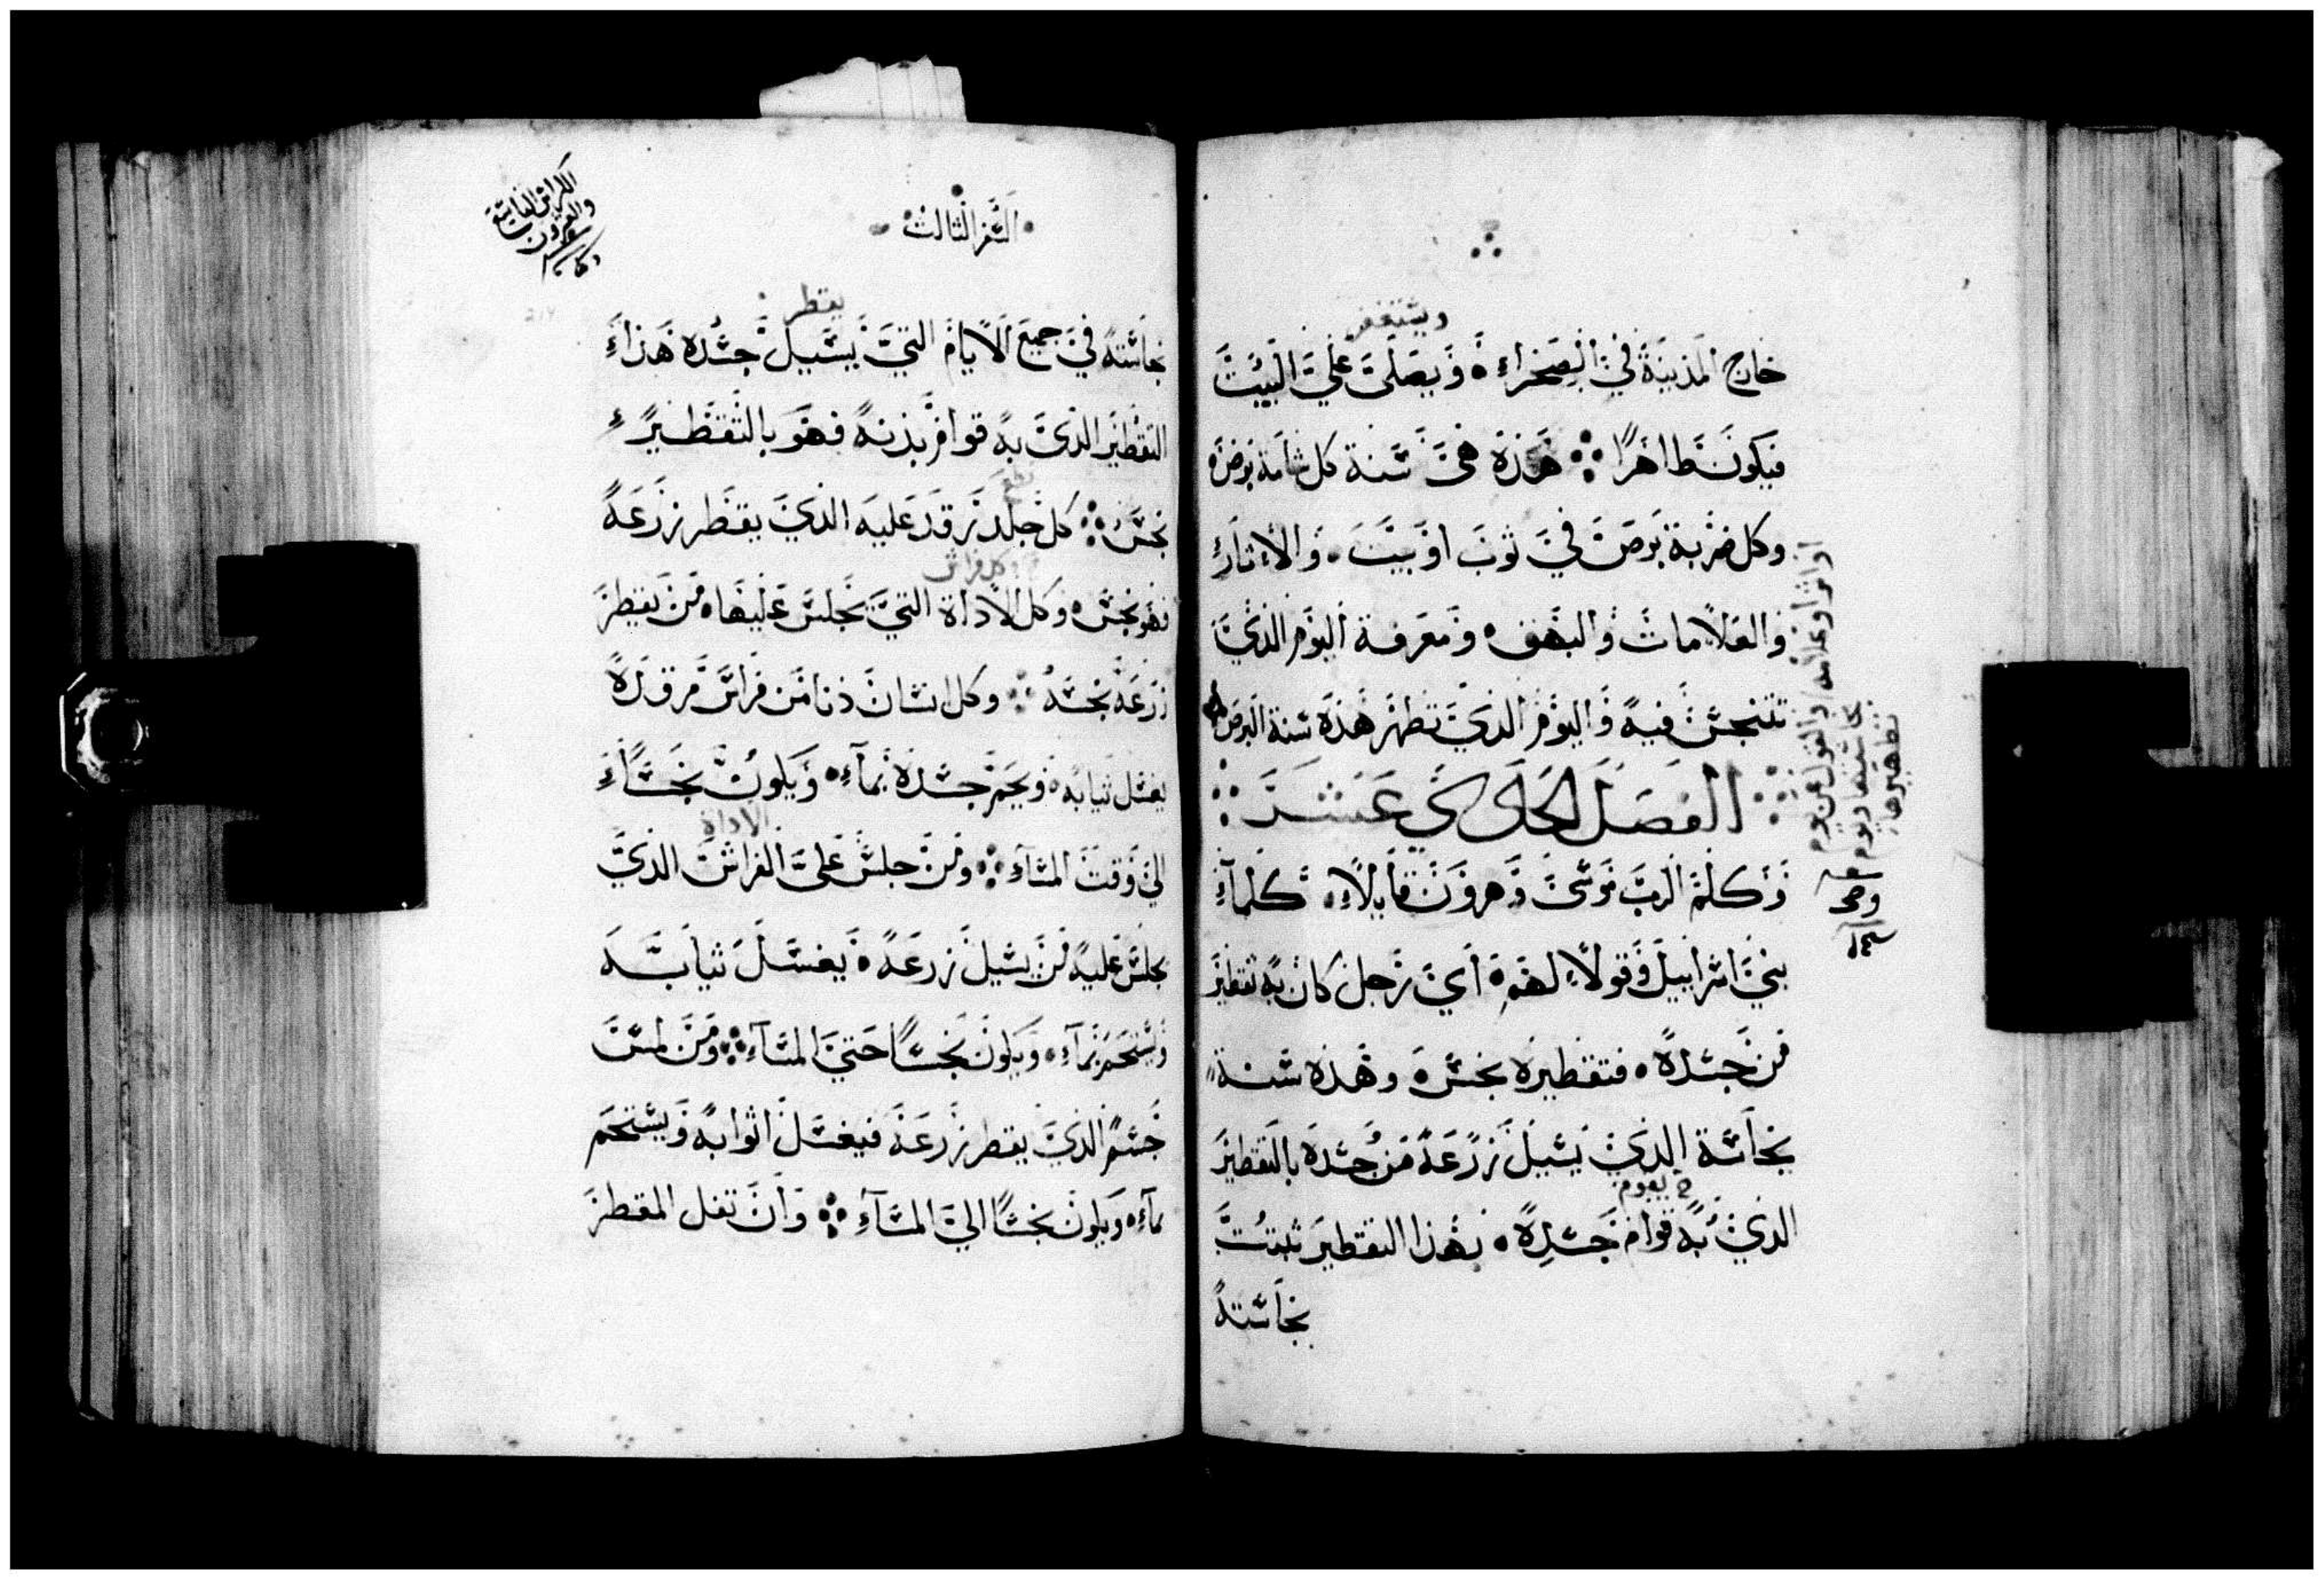 ويستغفر
خارج المدينة في الصحراء ۰ ويصلي علي البيت
فيكون طاهرًا ⁘ هذه هي سنة كل شامة برص
وكل ضربة برص في ثوب او بيت ۰ والاثار
والعلامات والبهق ۰ ومعرفة اليوم الذي
تتنجس فيه واليوم الذي تطهر هذه سنة البرص
الفصل الحادي عشر
وكلم الرب موسي وهرون قايلاً ۰ كلما
بني اسراييل وقولا لهم ۰ اي رجل كان به تقطير
من جسده ۰ فتقطيره نجس ۰ وهذه سنة
نجاسة الذي يسيل زرعه من جسده بالتقطير
يقوم
الذي به قوام جسده ۰ بهذا التقطير ثبتت
نجاسته
السفر الثالث
الكراس الثانية
والعشرون
يقطر
نجاسته في جميع الايام التي يسيل جسده هذا
التقطير الذي به قوام بدنه فهو بالتقطير
نجس ⁘ كل جلد رقد عليه الذي يقطر زرعه
وكل فراش
فهو نجس ۰ وكل الاداة التي يجلس عليها ۰ من يقطر
زرعه نجسه ⁘ وكل انسان دنا من فراش مرقده
يغسل ثيابه ۰ ويحم جسده بماء ۰ ويكون نجسًا
الاداة
الي وقت المساء ⁘ ومن جلس علي الفراش الذي
يجلس عليه من يسيل زرعه ۰ يغسل ثيابه
ويستحم بماء ۰ ويكون نجسًا حتي المساء ⁘ ومن لمس
جسم الذي يقطر زرعه فيغسل اثوابه ويستحم
بماء ۰ ويكون نجسًا الي المساء ⁘ وان تفل المقطر